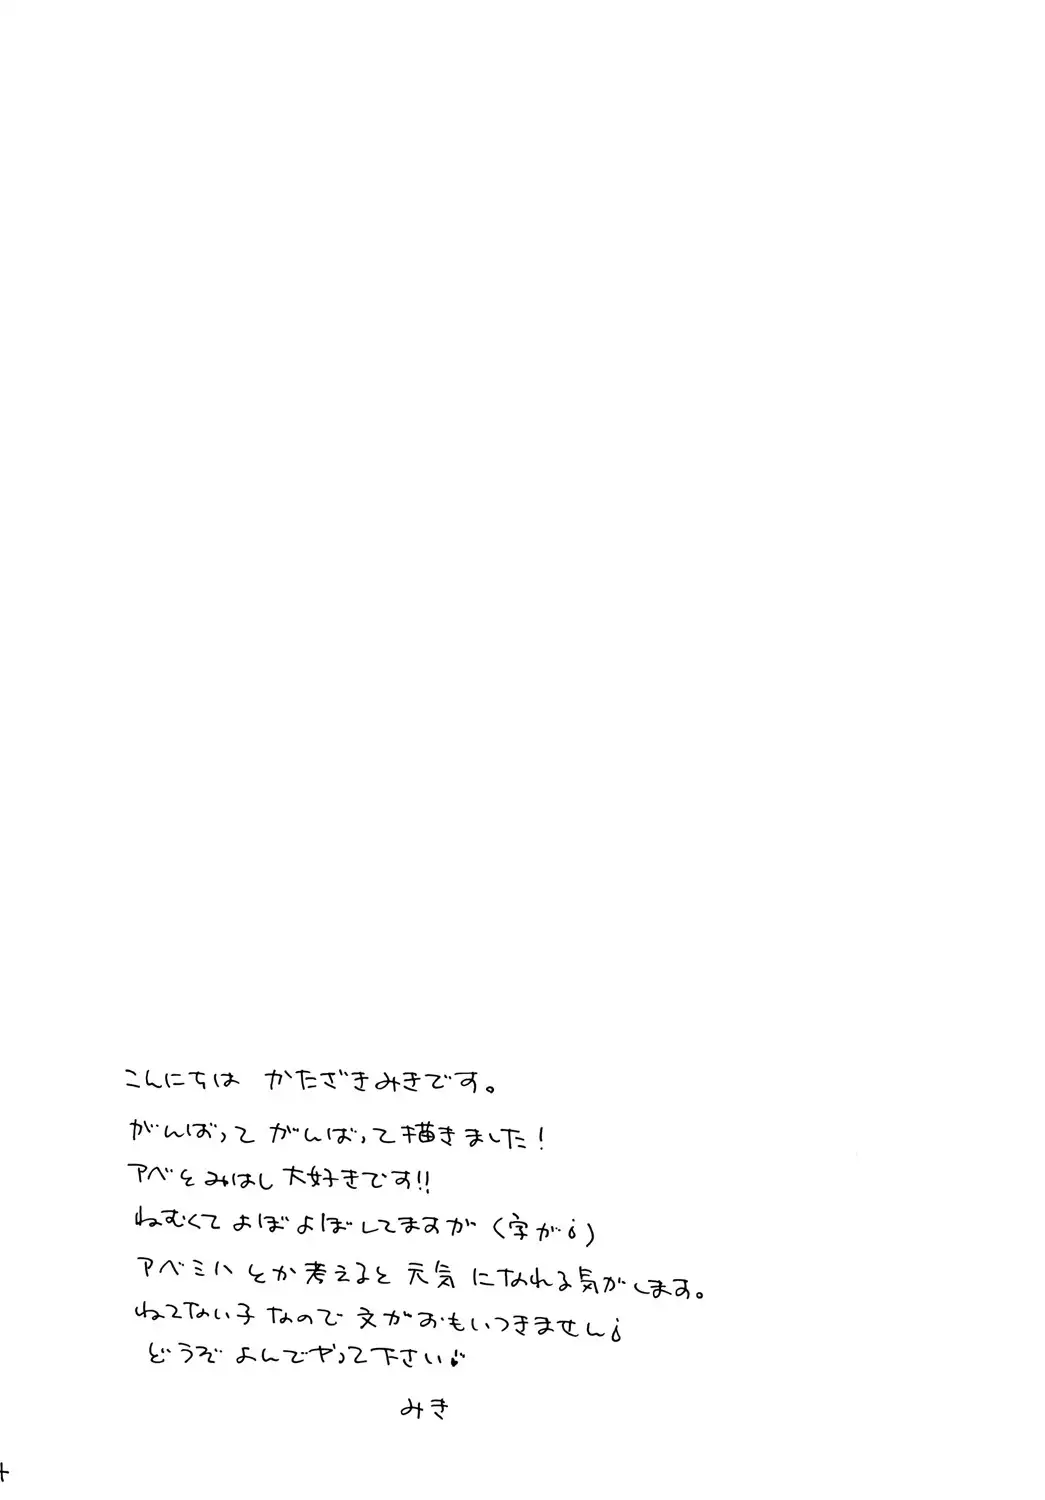 こんにちは かたざきみきです。
がんばって がんばって描きました!
アベと みはし 大好きです!!
ねむくて よぼよぼしてますが (字が💧)
アベミハ とか考えると 元気 になれる気がします。
ねてない子 なので 文がおもいつきません💧
どうぞ よんでやって下さい♪
みき